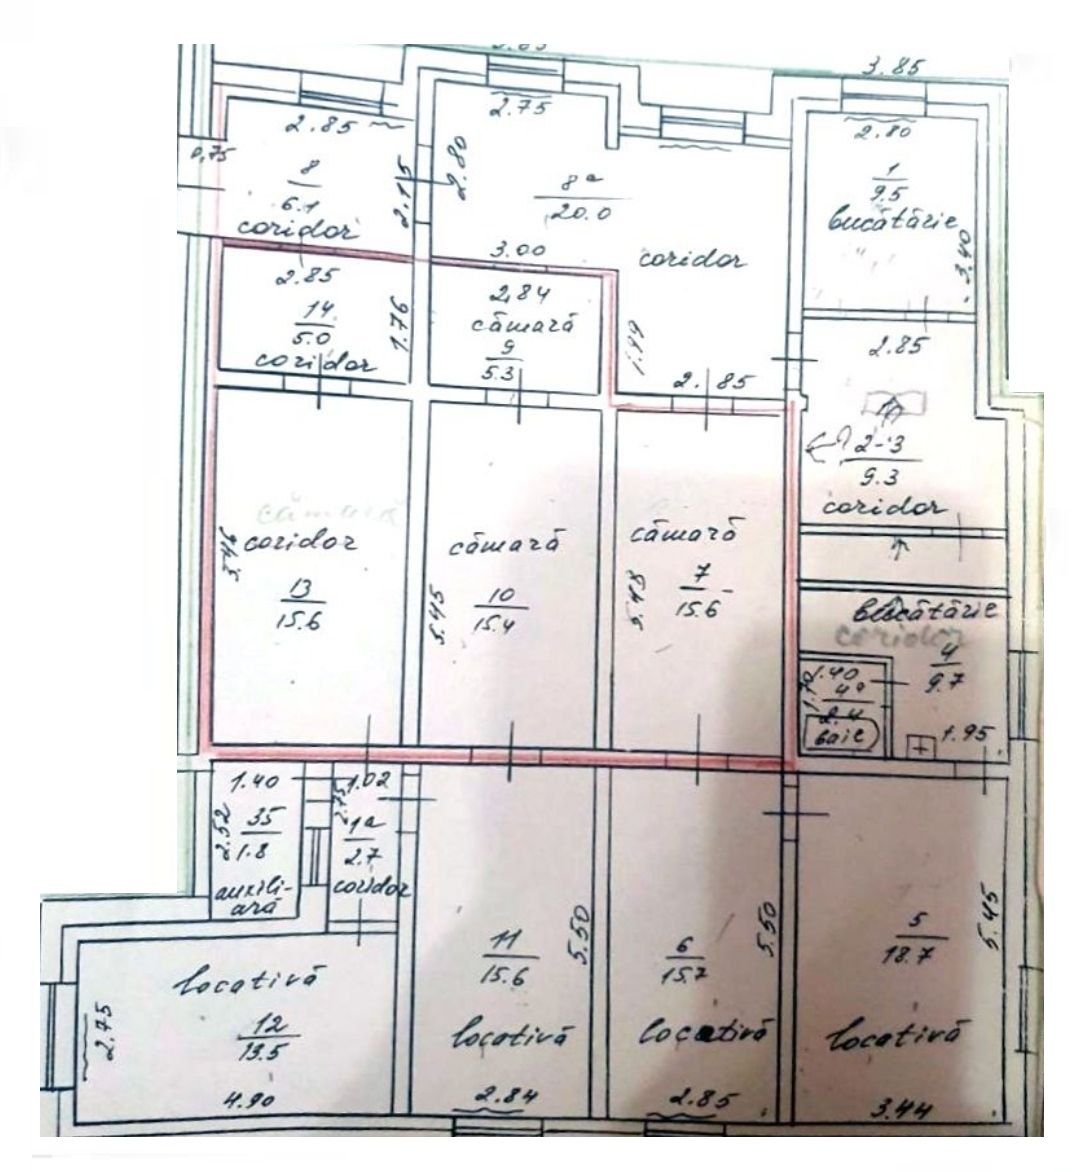 3.85
2.85
2.75
2.80
0,75
8
6.1
2.15
2.80
8a
20.0
1
9.5
coridor
bucătărie
3.00
coridor
3.40
2.85
2,84
14
5.0
1.76
cămară
9
5.3
1.99
2.85
coridor
2.85
2-3
9.3
coridor
cămară
coridor
cămară
cămară
13
15.6
5.45
10
15.4
5.48
7
15.6
bucătărie
coridor
4
9.7
1.40
1.70
4a
2.4
baie
1.95
1.40
1.02
2.52
35
1.8
2.75
1a
2.7
auxili-
ară
coridor
11
15.6
5.50
6
15.7
5.50
5
18.7
5.45
locativă
12
13.5
2.75
locativă
locativă
locativă
4.90
2.84
2.85
3.44